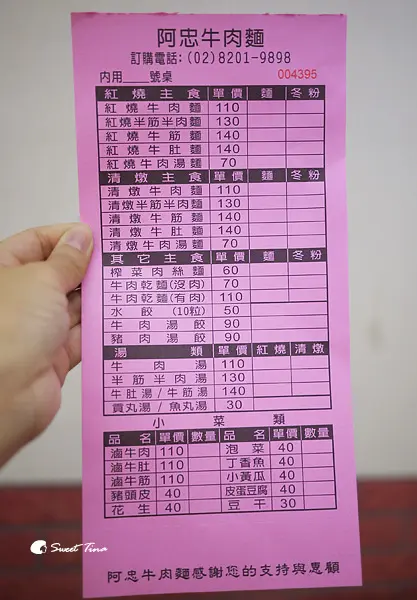 阿忠牛肉麵
訂購電話:(02)8201-9898
內用 號桌 004395
紅燒主食 單價 麵 冬粉
紅燒牛肉麵 110
紅燒半筋半肉麵 130
紅燒牛筋麵 140
紅燒牛肚麵 140
紅燒牛肉湯麵 70
清燉主食 單價 麵 冬粉
清燉牛肉麵 110
清燉半筋半肉麵 130
清燉牛筋麵 140
清燉牛肚麵 140
清燉牛肉湯麵 70
其它主食 單價 麵 冬粉
榨菜肉絲麵 60
牛肉乾麵(沒肉) 70
牛肉乾麵(有肉) 110
水餃(10粒) 50
牛肉湯餃 90
豬肉湯餃 90
湯類 單價 紅燒 清燉
牛肉湯 110
半筋半肉湯 130
牛肚湯/牛筋湯 140
貢丸湯/魚丸湯 30
小菜類
品名 單價 數量 品名 單價 數量
滷牛肉 110 泡菜 40
滷牛肚 110 丁香魚 40
滷牛筋 110 小黃瓜 40
豬頭皮 40 皮蛋豆腐 40
花生 40 豆干 30
阿忠牛肉麵感謝您的支持與惠顧
Sweet Tina